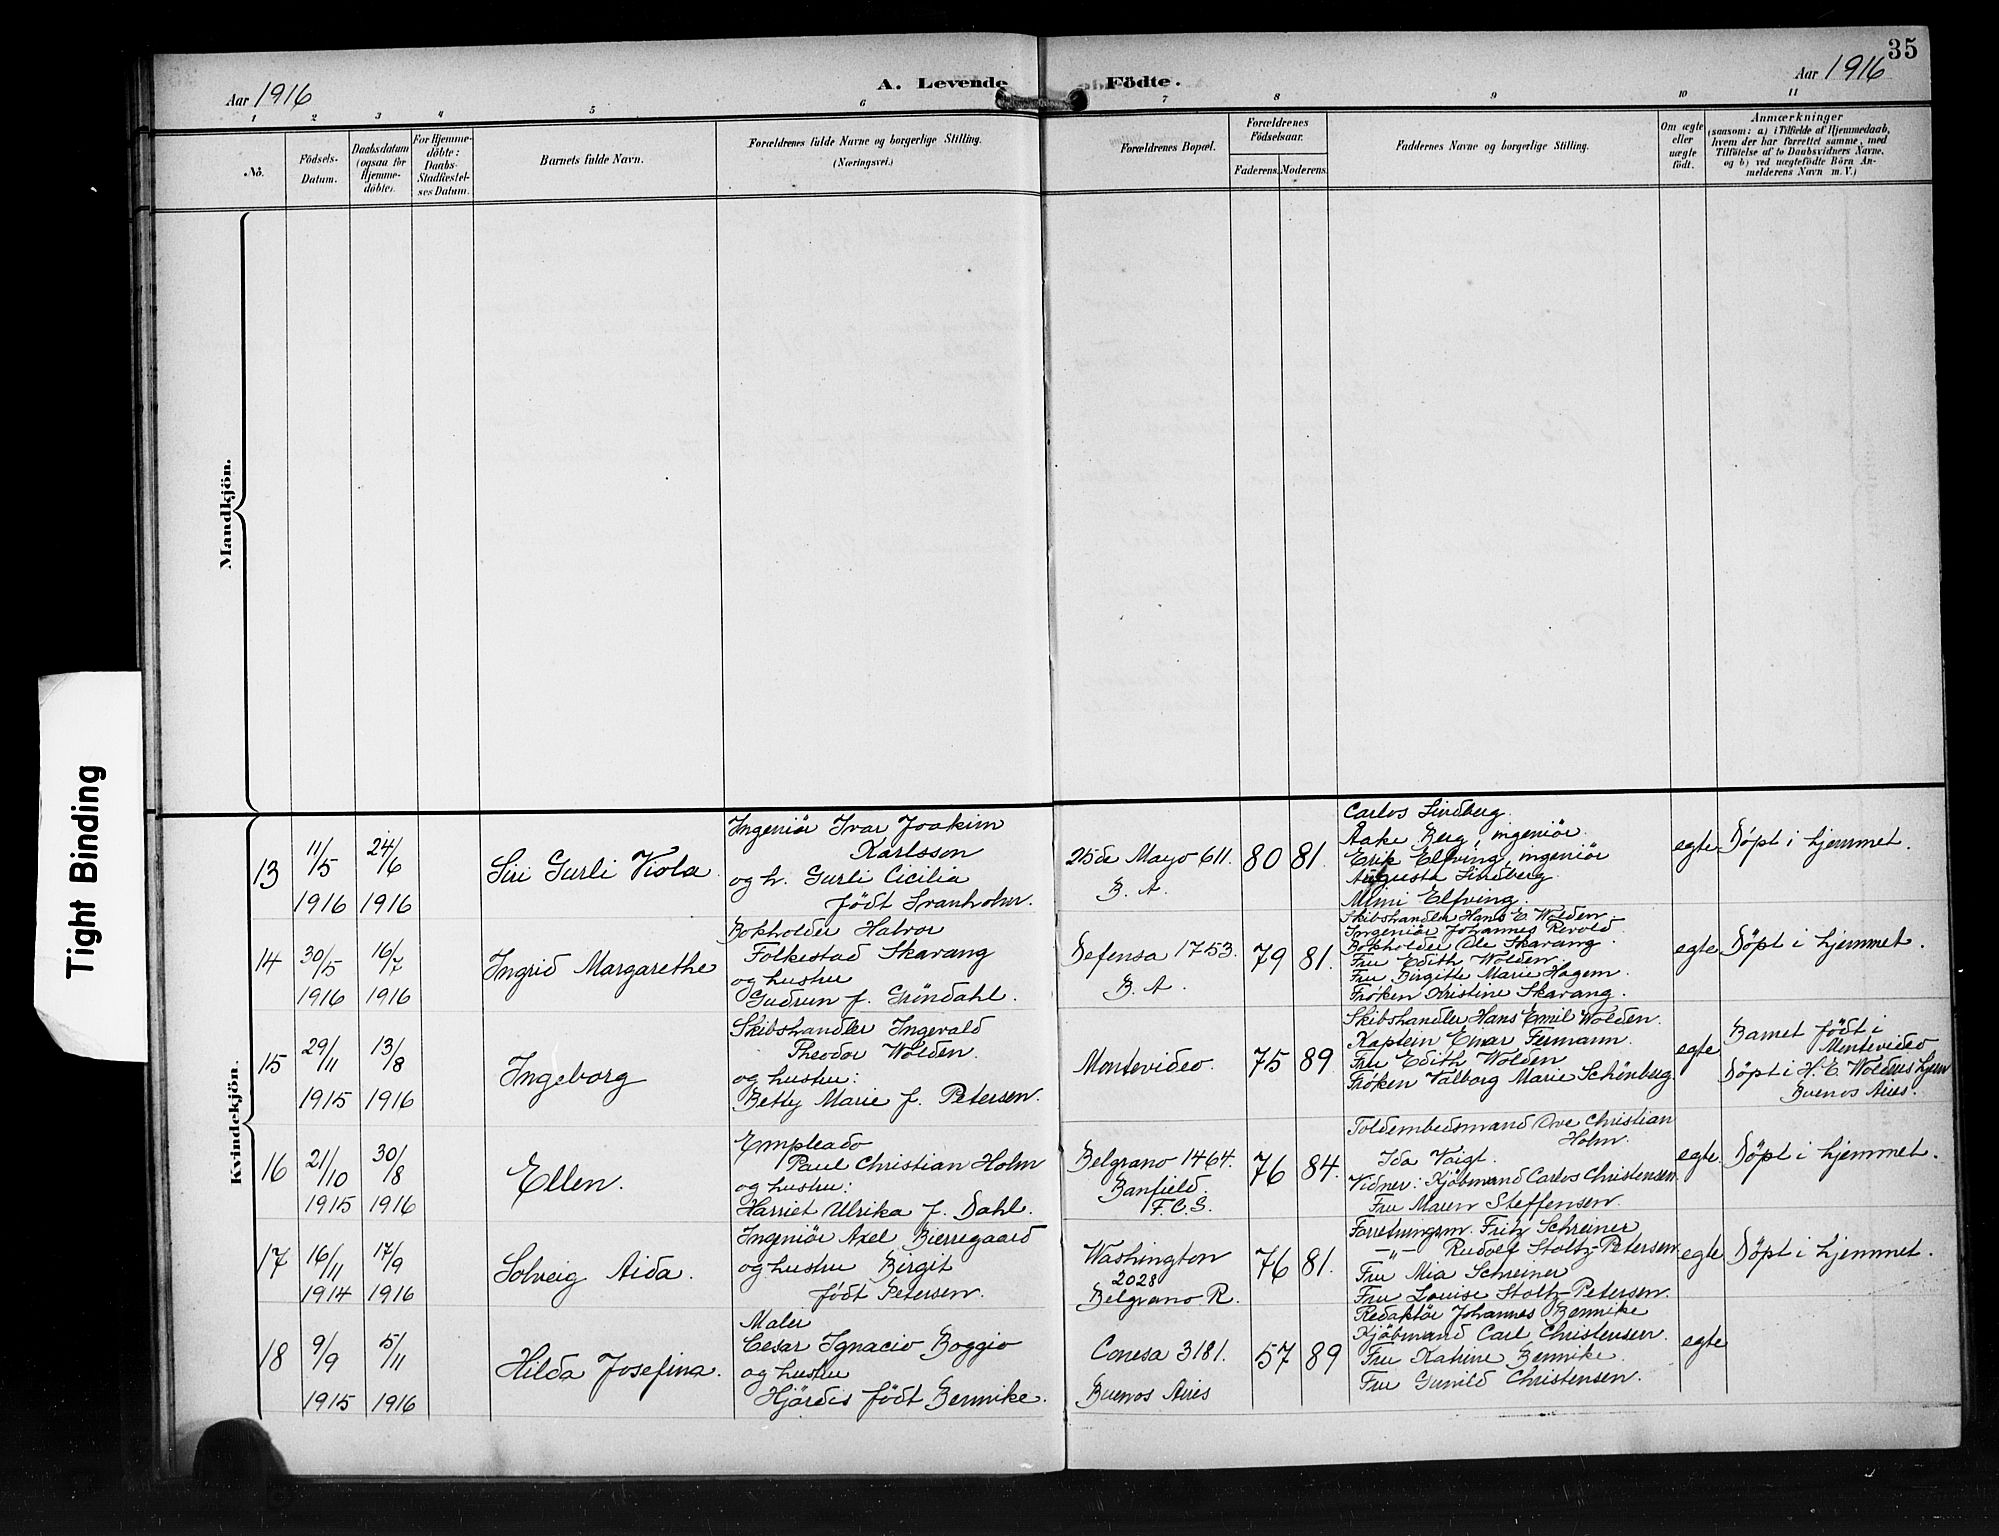 35
Aar 1916
A. Levende Födte.
Aar 1916
1 2 3 4 5 6 7 8 9 10 11
No.
Födsels-Datum.
Daabsdatum (ogsaa for Hjemme-döbte).
For Hjemme-döbte: Daabs-Stadfæstel-ses Datum.
Barnets fulde Navn.
Forældrenes fulde Navne og borgerlige Stilling. (Næringsvei.)
Forældrenes Bopæl.
Forældrenes Födselsaar.
Faderens. Moderens.
Faddernes Navne og borgerlige Stilling.
Om ægte eller uægte födt.
Anmærkninger
(saasom: a) i Tilfælde af Hjemmedaab, hvem der har forrettet samme, med Tilföielse af to Daabsvidners Navne, og b) ved uægtefödte Börn An-melderens Navn m. V.)
Mandkjön.
Kvindekjön.
Tight Binding
13
11/5 1916
24/6 1916
Siri Gurli Viola.
Ingeniör Ivar Joakim
Karlsson
og h. Gurli Cicilia
født Svanholm.
25 de Mayo 611.
B. A.
80 81.
Carlos Lindberg.
Aake Berg, ingeniör.
Erik Elfving, ingeniör
Augusta Lindberg.
Mimi Elfving.
egte
Døpt i hjemmet.
14
30/5 1916
16/7 1916
Ingrid Margarethe
Bokholder Halvor
Folkestad Skarang
og hustru
Gudrun f. Gröndahl.
Defensa 1753.
B. A.
79 81.
Skibshandler Hans E. Wolden
Ingeniör Johannes Rerold
Bokholder Ole Skarang.
Fru Edith Wolden.
Fru Birgitte Marie Hagem.
Frøken Kristine Skarang.
egte
Døpt i hjemmet.
15
29/11 1915
13/8 1916
Ingeborg
Skibshandler Ingevald
Theodor Wolden.
og hustru:
Betty Marie f. Petersen.
Montevideo.
75 89
Skibshandler Hans Emil Wolden.
Kaptein Einar Fermann.
Fru Edith Wolden
Frøken Valborg Marie Schönberg.
egte
Barnet født i
Montevideo
Døpt i H. E. Woldens hjem
Buenos Aires.
16
21/10 1915
30/8 1916
Ellen.
Empleado
Paul Christian Holm
og hustru:
Harriet Ulrika f. Dahl.
Belgrano 1464.
Banfield.
F. C. S.
76 84.
Toldembedsmand Ove Christian
Holm.
Ida Voigt.
Vidner: Kjøbmand Carlos Christensen
Fru Maren Steffensen.
egte.
Døpt i hjemmet.
17
16/11 1914
17/9 1916
Solveig Aida.
Ingeniör Axel Bierregaard
og hustru Birgit
født Petersen.
Washington
2028
Belgrano R.
76 81.
Forretningsm. Fritz Schreiner
—"— Rudolf Stoltz-Petersen
Fru Mia Schreiner
Fru Louise Stoltz-Petersen.
egte
Døpt i hjemmet.
18
9/9 1915
5/11 1916
Hilda Josefina.
Maler
Cesar Ignacio Boggio
og hustru
Hjördis født Bennike.
Conesa 3181.
Buenos Aires
57 89
Redaktör Johannes Bennike
Kjøbmand Carl Christensen.
Fru Katrine Bennike.
Fru Gunild Christensen.
egte